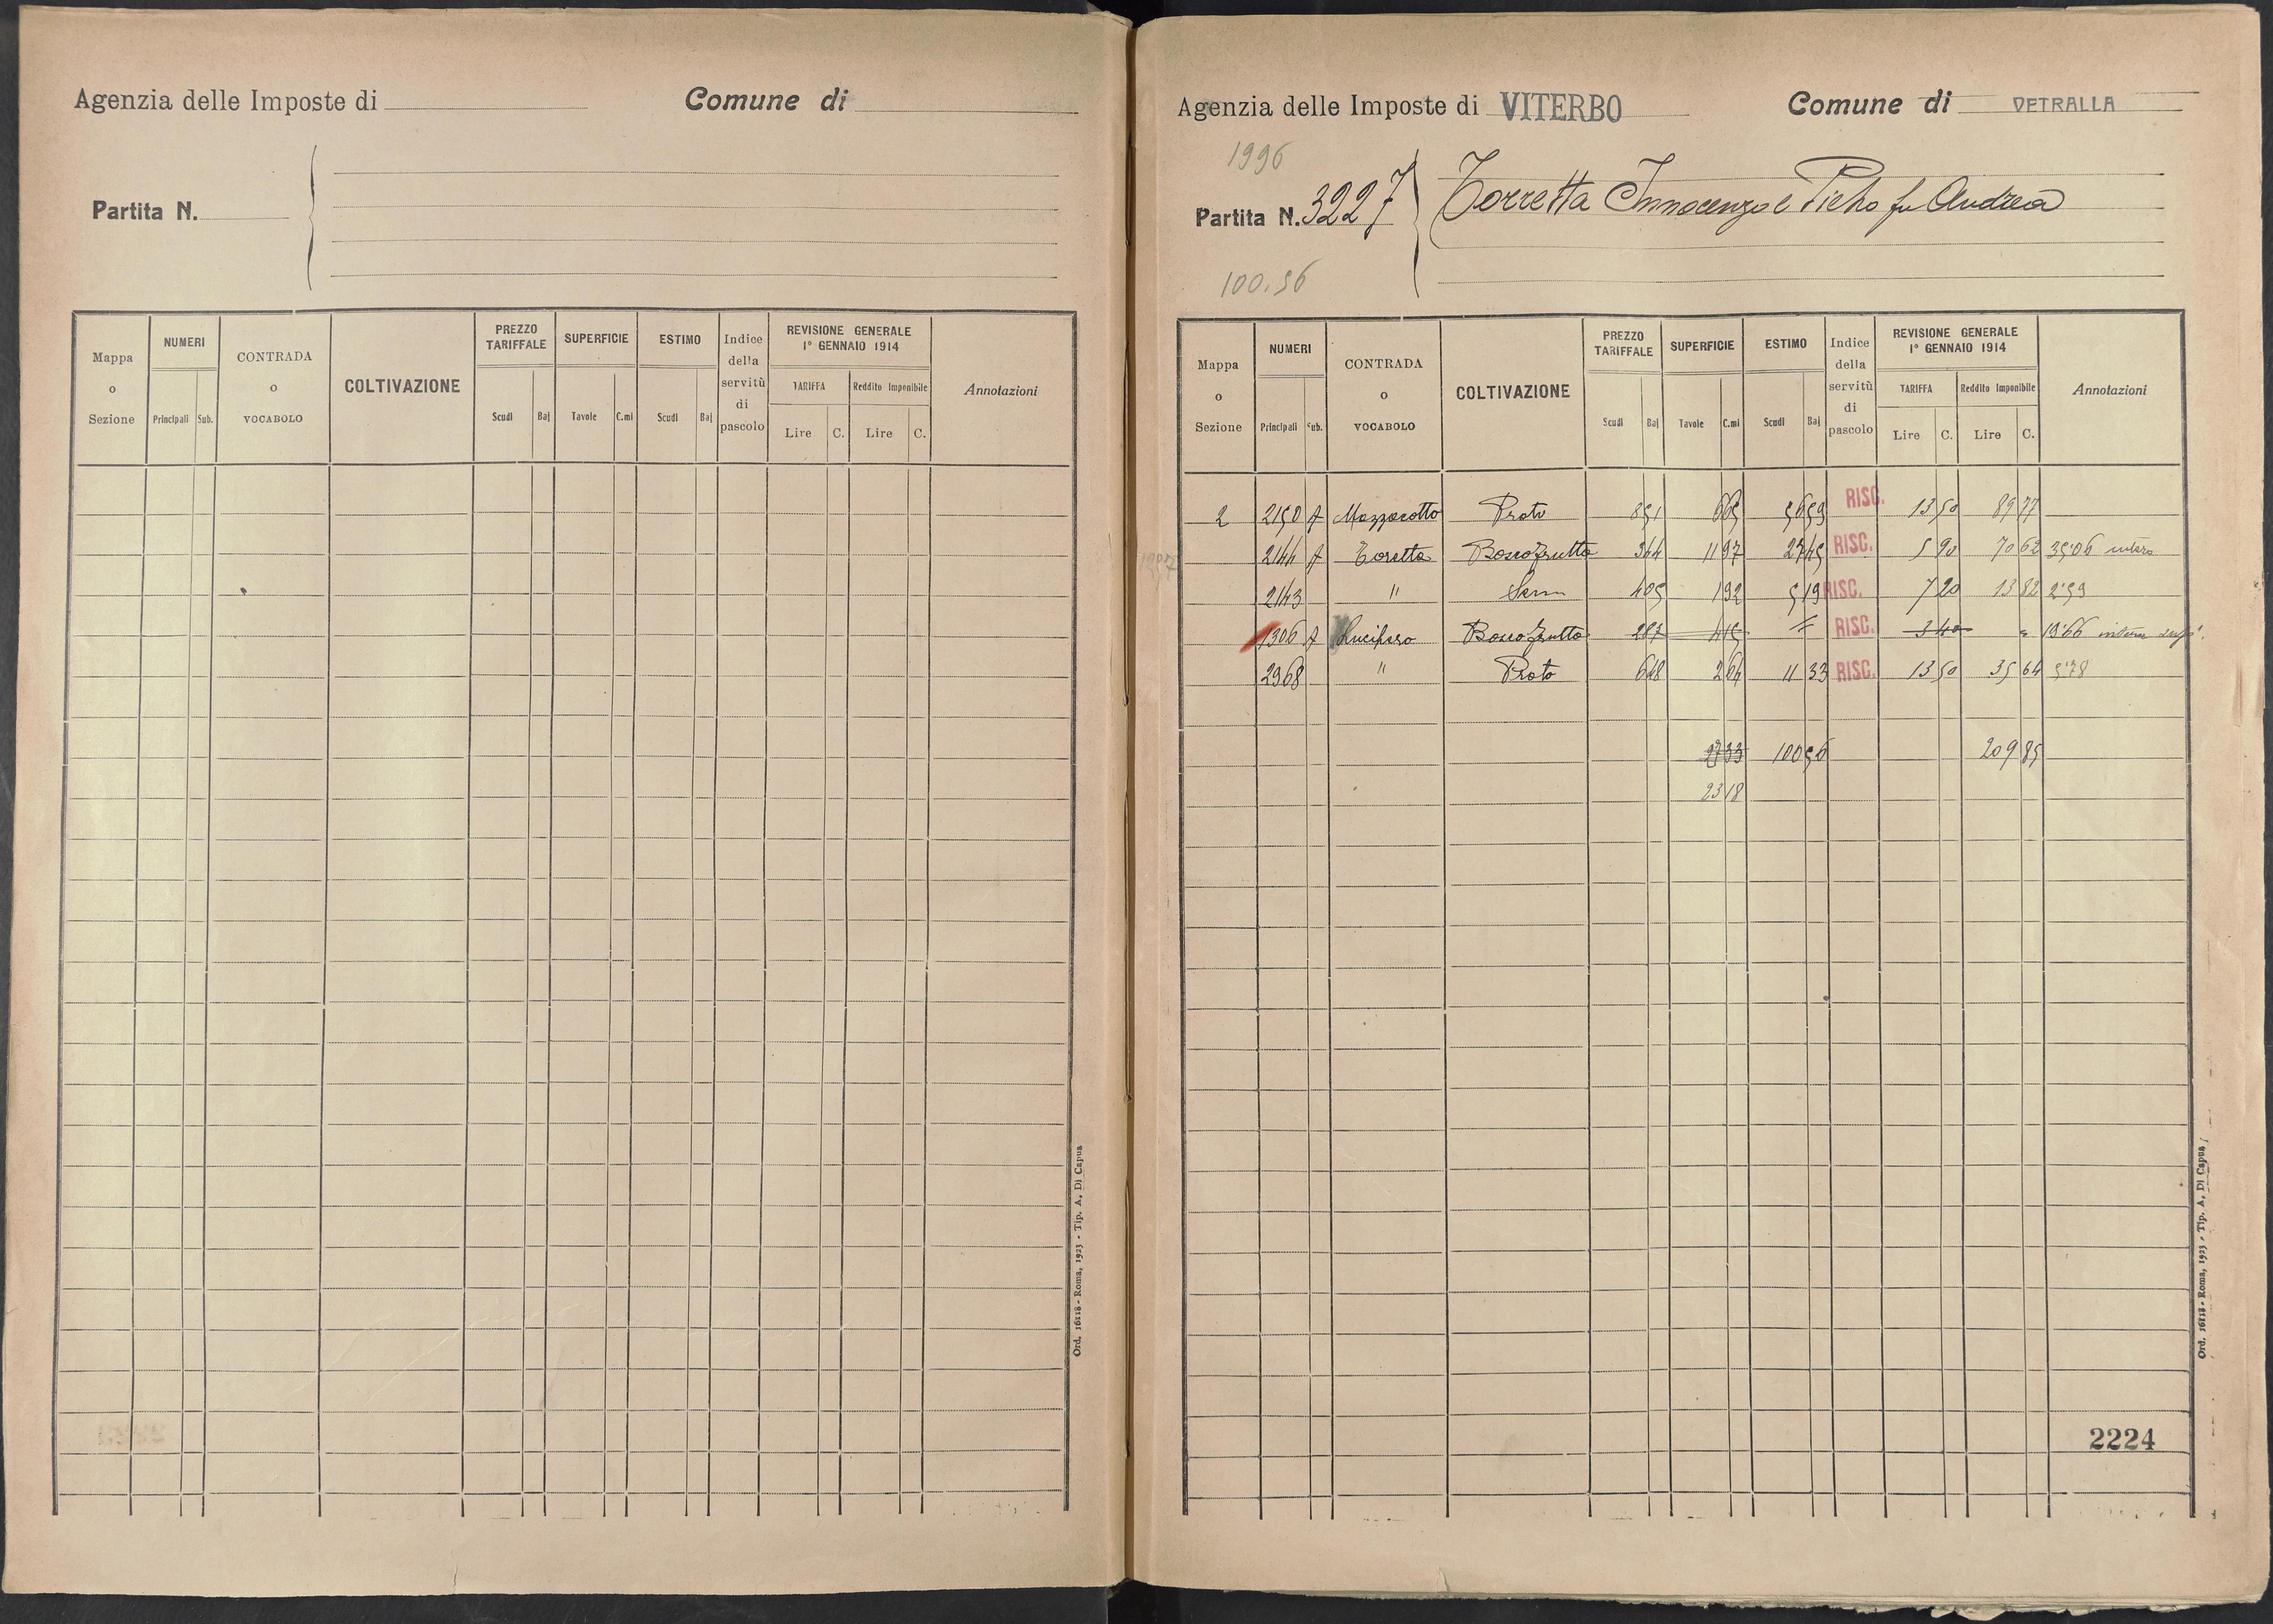 Agenzia delle Imposte di
Comune di
Partita N.
Mappa o Sezione | NUMERI Principali Sub. | CONTRADA o VOCABOLO | COLTIVAZIONE | PREZZO TARIFFALE Scudi Baj | SUPERFICIE Tavole C.mi | ESTIMO Scudi Baj | Indice della servitù di pascolo | REVISIONE GENERALE 1° GENNAIO 1914 TARIFFA Lire C. Reddito Imponibile Lire C. | Annotazioni
Ord. 16118 - Roma, 1923 - Tip. A. Di Capua
Agenzia delle Imposte di VITERBO
Comune di VETRALLA
1996
Partita N. 3227 Torretta Innocenzo e Pietro fu Andrea
100.56
Mappa o Sezione | NUMERI Principali Sub. | CONTRADA o VOCABOLO | COLTIVAZIONE | PREZZO TARIFFALE Scudi Baj | SUPERFICIE Tavole C.mi | ESTIMO Scudi Baj | Indice della servitù di pascolo | REVISIONE GENERALE 1° GENNAIO 1914 TARIFFA Lire C. Reddito Imponibile Lire C. | Annotazioni
2 | 2150 A | Mazzacotto | Prato | 8 51 | 6 65 | 56 59 | RISC. | 13 50 | 89 77
2144 A | Toretta | Bosco frutto | 3 44 | 11 97 | 27 45 | RISC. | 5 90 | 70 62 | 35.06 intero
2143 | " | Sem | 4 05 | 1 92 | 5 19 | RISC. | 7 20 | 13 82 | 2.59
1306 A | Lucifero | Bosco frutto | 2 87 | 4 15 | = | RISC. | 3 40 | = | 19.66
2968 | " | Prato | 6 48 | 2 64 | 11 33 | RISC. | 13 50 | 35 64 | 5.78
27 33 | 100 56 | 209 85
23 18
2224
Ord. 16118 - Roma, 1923 - Tip. A. Di Capua